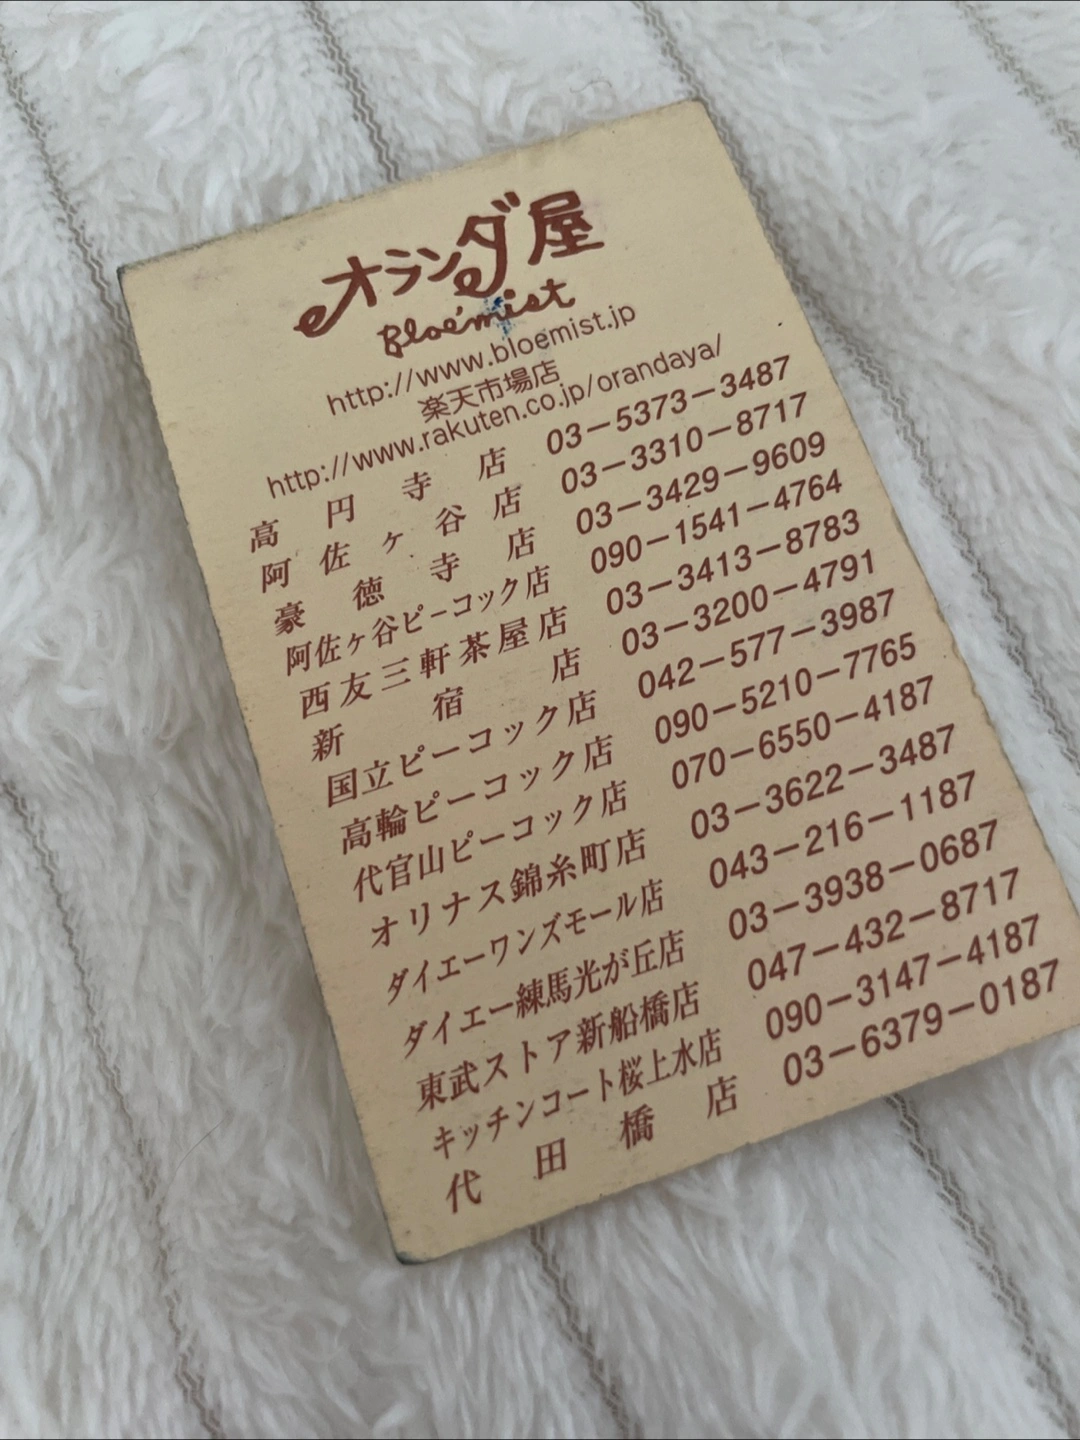 オランダ屋
Bloémist
http://www.bloemist.jp
楽天市場店
http://www.rakuten.co.jp/orandaya/
高円寺店 03-5373-3487
阿佐ヶ谷店 03-3310-8717
豪徳寺店 03-3429-9609
阿佐ヶ谷ピーコック店 090-1541-4764
西友三軒茶屋店 03-3413-8783
新宿店 03-3200-4791
国立ピーコック店 042-577-3987
高輪ピーコック店 090-5210-7765
代官山ピーコック店 070-6550-4187
オリナス錦糸町店 03-3622-3487
ダイエーワンズモール店 043-216-1187
ダイエー練馬光が丘店 03-3938-0687
東武ストア新船橋店 047-432-8717
キッチンコート桜上水店 090-3147-4187
代田橋店 03-6379-0187